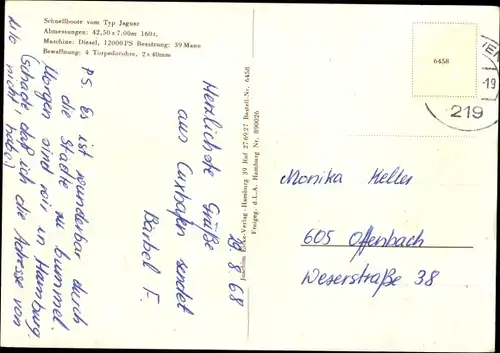 Schnellboote vom Typ Jaguar
Abmessungen: 42,50 x 7,00m 160t,
Maschine: Diesel, 12000PS Besatzung: 39 Mann
Bewaffnung: 4 Torpedorohre, 2 x 40mm
28.8.68
Herzlichste Grüße
aus Cuxhafen sendet
Bärbel F.
PS. Es ist wunderbar durch
die Städte zu bummel.
Morgen sind wir in Hamburg.
Schade, daß ich die Adresse von
nicht habe!
Verlag · Hamburg 39 Ruf 27 69 27 Bestell-Nr. 6458
Freigeg. d. L. A. Hamburg Nr. 890026
6458
-19
219
Monika Keller
605 Offenbach
Weserstraße 38